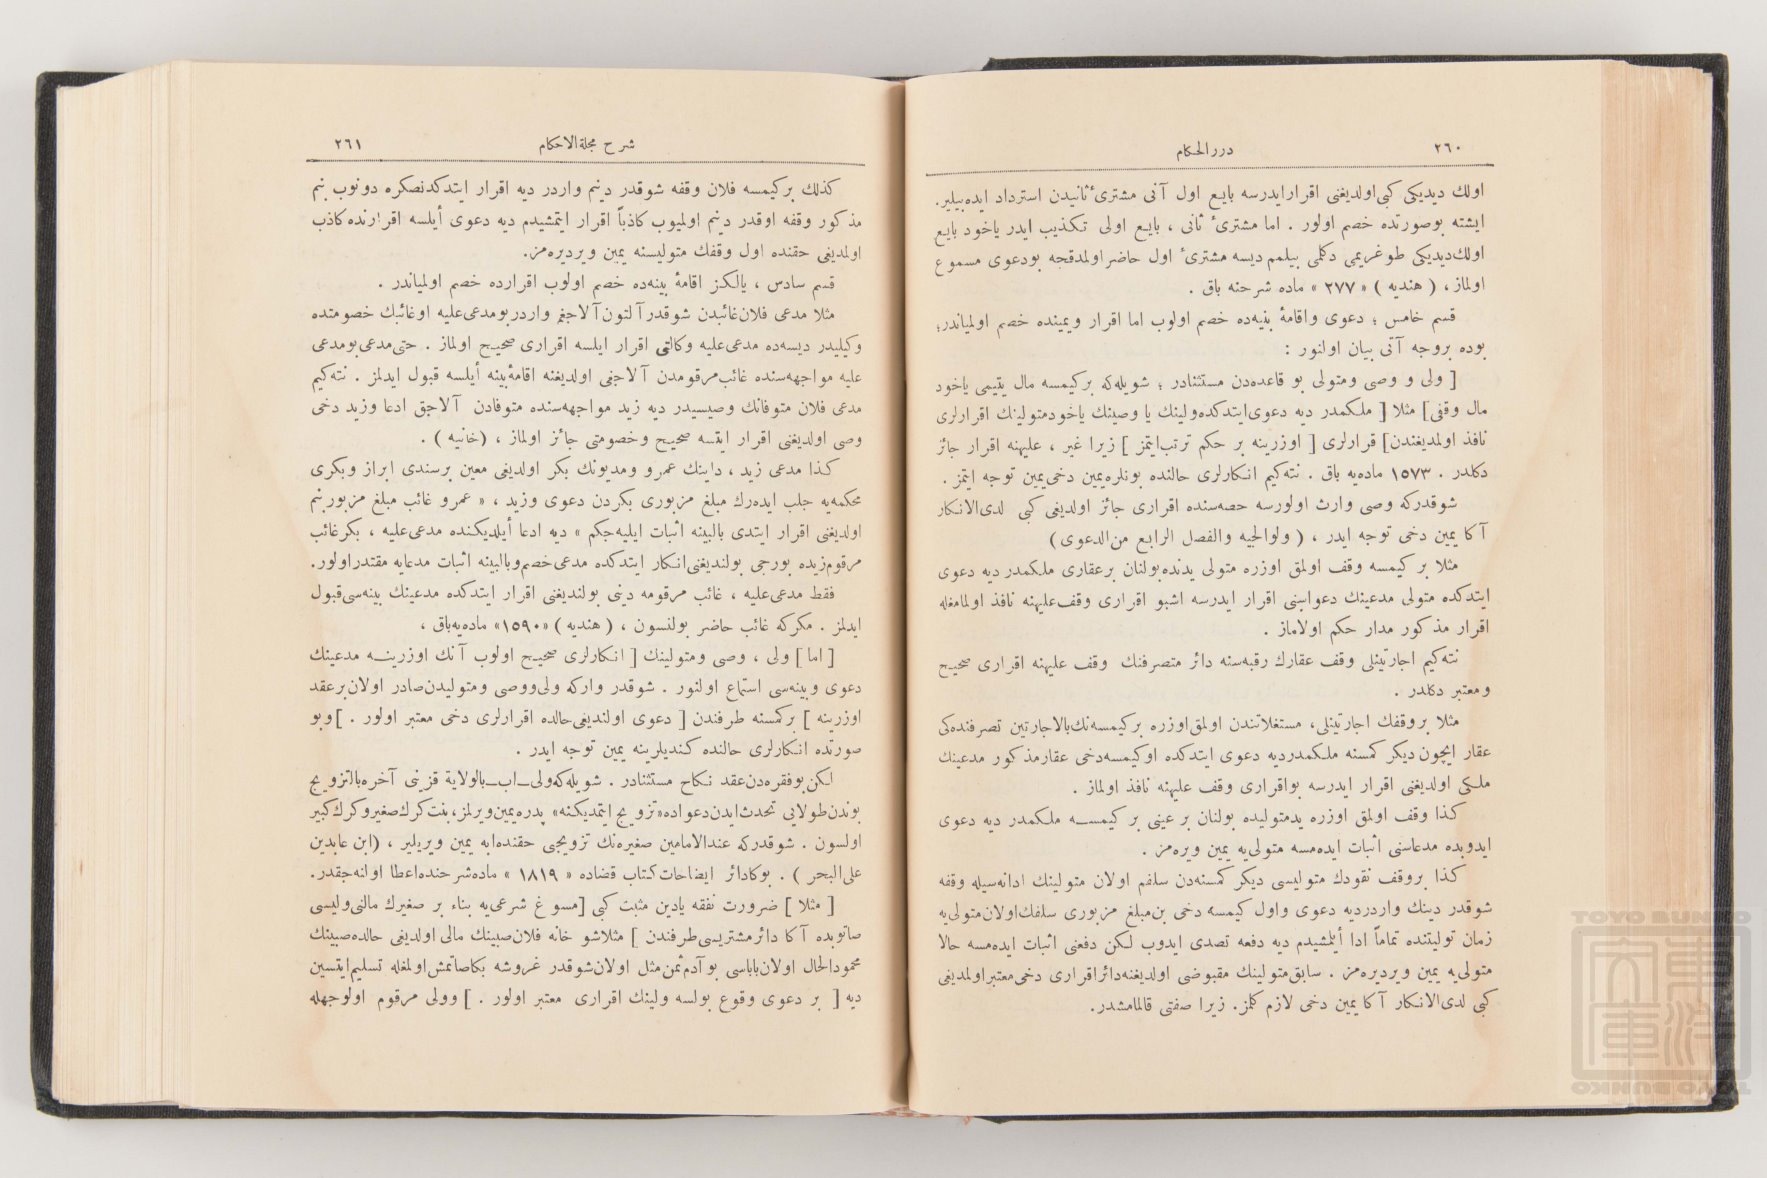 ٢٦٠
درر الحكام
اولك ديديكى كبى اولديغنى اقرار ايدرسه بايع اول آنى مشترئ ثانيدن استرداد ايده بيلير.
ايشته بوصورتده خصم اولور . اما مشترئ ثانى ، بايع اولى تكذيب ايدر ياخود بايع
اولك ديديكى طوغريمى دكلمى بيلمم ديسه مشترئ اول حاضر اولمدقجه بودعوى مسموع
اولماز، ( هنديه ) « ٢٧٧ » ماده شرحنه باق .
قسم خامس ؛ دعوى واقامهٔ بينه‌ده خصم اولوب اما اقرار ويمينده خصم اولمياندر؛
بوده بروجه آتى بيان اولنور :
[ ولى و وصى ومتولى بو قاعده‌دن مستثنادر ؛ شويله‌كه بركيمسه مال يتيمى ياخود
مال وقفى] مثلا [ ملكمدر ديه دعوى ايتدكده ولينك يا وصينك ياخود متولينك اقرارلرى
نافذ اولمديغندن] قرارلرى [ اوزرينه بر حكم ترتب ايتمز ] زيرا غير ، عليهنه اقرار جائز
دكلدر . ١٥٧٣ ماده‌يه باق . نته‌كيم انكارلرى حالنده بونلره يمين دخى يمين توجه ايتمز .
شوقدركه وصى وارث اولورسه حصه‌سنده اقرارى جائز اولديغى كبى لدى‌الانكار
آكا يمين دخى توجه ايدر ، ( ولوالجيه والفصل الرابع من الدعوى)
مثلا بر كيمسه وقف اولمق اوزره متولى يدنده بولنان برعقارى ملكمدر ديه دعوى
ايتدكده متولى مدعينك دعواسنى اقرار ايدرسه اشبو اقرارى وقف عليهنه نافذ اولمامغله
اقرار مذكور مدار حكم اولاماز .
نته‌كيم اجارتينلى وقف عقارك رقبه‌سنه دائر متصرفنك وقف عليهنه اقرارى صحيح
ومعتبر دكلدر .
مثلا بروقفك اجارتينلى، مستغلاتندن اولمق اوزره بركيمسه‌نك بالاجارتين تصرفنده‌كى
عقار ايچون ديكر كمسنه ملكمدر ديه دعوى ايتدكده اوكيمسه دخى عقار مذكور مدعينك
ملكى اولديغنى اقرار ايدرسه بواقرارى وقف عليهنه نافذ اولماز .
كذا وقف اولمق اوزره يدمتوليده بولنان بر عينى بر كيمسه ملكمدر ديه دعوى
ايدوبده مدعاسنى اثبات ايده‌مسه متولى‌يه يمين ويره‌مز .
كذا بروقف نقودك متوليسى ديكر كمسنه‌دن سلفم اولان متولينك ادانه‌سيله وقفه
شوقدر دينك واردر ديه دعوى واول كيمسه دخى بن مبلغ مزبورى سلفك اولان متولى‌يه
زمان توليتنده تماماً ادا أيلمشيدم ديه دفعه تصدى ايدوب لكن دفعنى اثبات ايده‌مسه حالا
متولى‌يه يمين ويرديره‌مز . سابق متولينك مقبوضى اولديغنه دائر اقرارى دخى معتبر اولمديغى
كبى لدى‌الانكار آكا يمين دخى لازم كلمز. زيرا صفتى قالمامشدر.
شرح مجلة الاحكام
٢٦١
كذلك بركيمسه فلان وقفه شوقدر دينم واردر ديه اقرار ايتدكدنصكره دونوب بنم
مذكور وقفه اوقدر دينم اولميوب كاذباً اقرار ايتمشيدم ديه دعوى أيلسه اقرارنده كاذب
اولمديغى حقنده اول وقفك متوليسنه يمين ويرديره‌مز.
قسم سادس ، يالكز اقامهٔ بينه‌ده خصم اولوب اقرارده خصم اولمياندر .
مثلا مدعى فلان غائبدن شوقدر آلتون آلاجغم واردر بو مدعى عليه اوغائبك خصومتده
وكيليدر ديسه‌ده مدعى عليه وكالتى اقرار ايلسه اقرارى صحيح اولماز . حتى مدعى بومدعى
عليه مواجهه‌سنده غائب مرقومدن آلاجغى اولديغنه اقامهٔ بينه أيلسه قبول ايدلمز . نته‌كيم
مدعى فلان متوفانك وصيسيدر ديه زيد مواجهه‌سنده متوفادن آلاجق ادعا وزيد دخى
وصى اولديغنى اقرار ايتسه صحيح وخصومتى جائز اولماز ، (خانيه ) .
كذا مدعى زيد ، داينك عمرو ومديونك بكر اولديغى معين برسندى ابراز وبكرى
محكمه‌يه جلب ايده‌رك مبلغ مزبورى بكردن دعوى وزيد ، « عمرو غائب مبلغ مزبور بنم
اولديغنى اقرار ايتدى بالبينه اثبات ايليه‌جكم » ديه ادعا أيلديكنده مدعى عليه ، بكر غائب
مرقوم زيده بورجى بولنديغنى انكار ايتدكده مدعى خصم وبالبينه اثبات مدعايه مقتدر اولور.
فقط مدعى عليه ، غائب مرقومه دينى بولنديغنى اقرار ايتدكده مدعينك بينه‌سى قبول
ايدلمز . مكركه غائب حاضر بولنسون ، ( هنديه ) «١٥٩٠» ماده‌يه باق ،
[ اما ] ولى ، وصى ومتولينك [ انكارلرى صحيح اولوب آنك اوزرينه مدعينك
دعوى وبينه‌سى استماع اولنور . شوقدر واركه ولى ووصى ومتوليدن صادر اولان برعقد
اوزرينه ] بركمسنه طرفندن [ دعوى اولنديغى حالده اقرارلرى دخى معتبر اولور . ] وبو
صورتده انكارلرى حالنده كنديلرينه يمين توجه ايدر .
لكن بوفقره‌دن عقد نكاح مستثنادر . شويله‌كه ولى ـ اب ـ بالولاية قزينى آخره بالتزويج
بوندن طولايى تحدث ايدن دعواده «تزويج ايتمديكنه» پدره يمين ويرلمز، بنت كرك صغير وكرك كبير
اولسون . شوقدركه عندالامامين صغيره‌نك تزويجى حقنده ابه يمين ويريلير ، (ابن عابدين
على البحر ) . بوكا دائر ايضاحات كتاب قضاده « ١٨١٩ » ماده شرحنده اعطا اولنه‌جقدر.
[ مثلا ] ضرورت نفقه يادين مثبت كبى [ مسوغ شرعى‌يه بناء بر صغيرك مالنى وليسى
صاتوبده آكا دائر مشتريسى طرفندن ] مثلا شو خانه فلان صبينك مالى اولديغى حالده صبينك
محمودالحال اولان باباسى بو آدم ثمن مثل اولان شوقدر غروشه بكا صاتمش اولمغله تسليم ايتسين
ديه [ بر دعوى وقوع بولسه ولينك اقرارى معتبر اولور . ] وولى مرقوم اولوجهله
TOYO BUNKO
東洋文庫
TOYO BUNKO